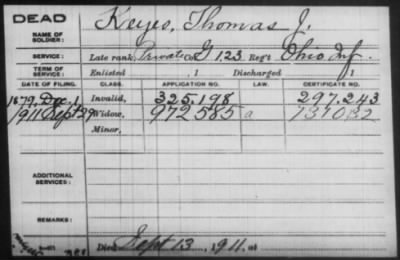 DEAD
NAME OF SOLDIER: Keyes, Thomas J.
SERVICE: Late rank, Private Co. G 123, Reg't Ohio Inf.
TERM OF SERVICE: Enlisted , 1 Discharged , 1
DATE OF FILING. CLASS. APPLICATION NO. LAW. CERTIFICATE NO.
1879, Dec. 1 Invalid, 325.198 297.243
1911 Sept 29 Widow, 972585 a
Minor,
ADDITIONAL SERVICES:
REMARKS:
Died Sept 13, 1911, at